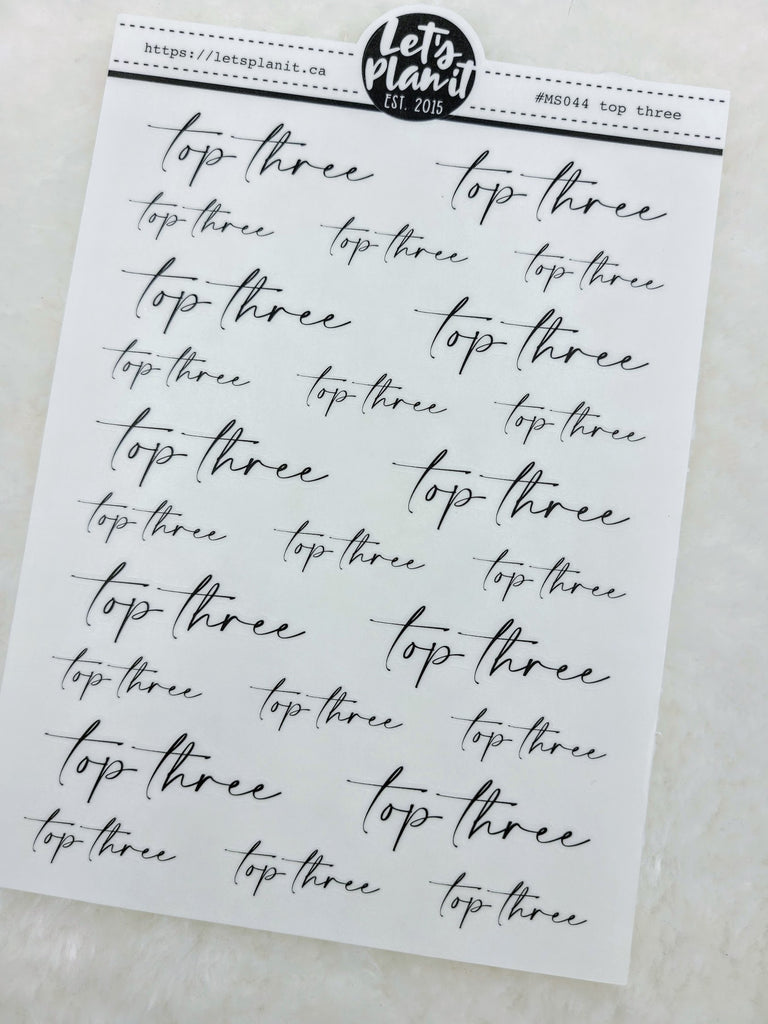 https://letsplanit.ca
Let's
plan it
EST. 2015
#MS044 top three
top three top three
top three top three top three
top three top three
top three top three top three
top three top three
top three top three top three
top three top three
top three top three top three
top three top three
top three top three top three